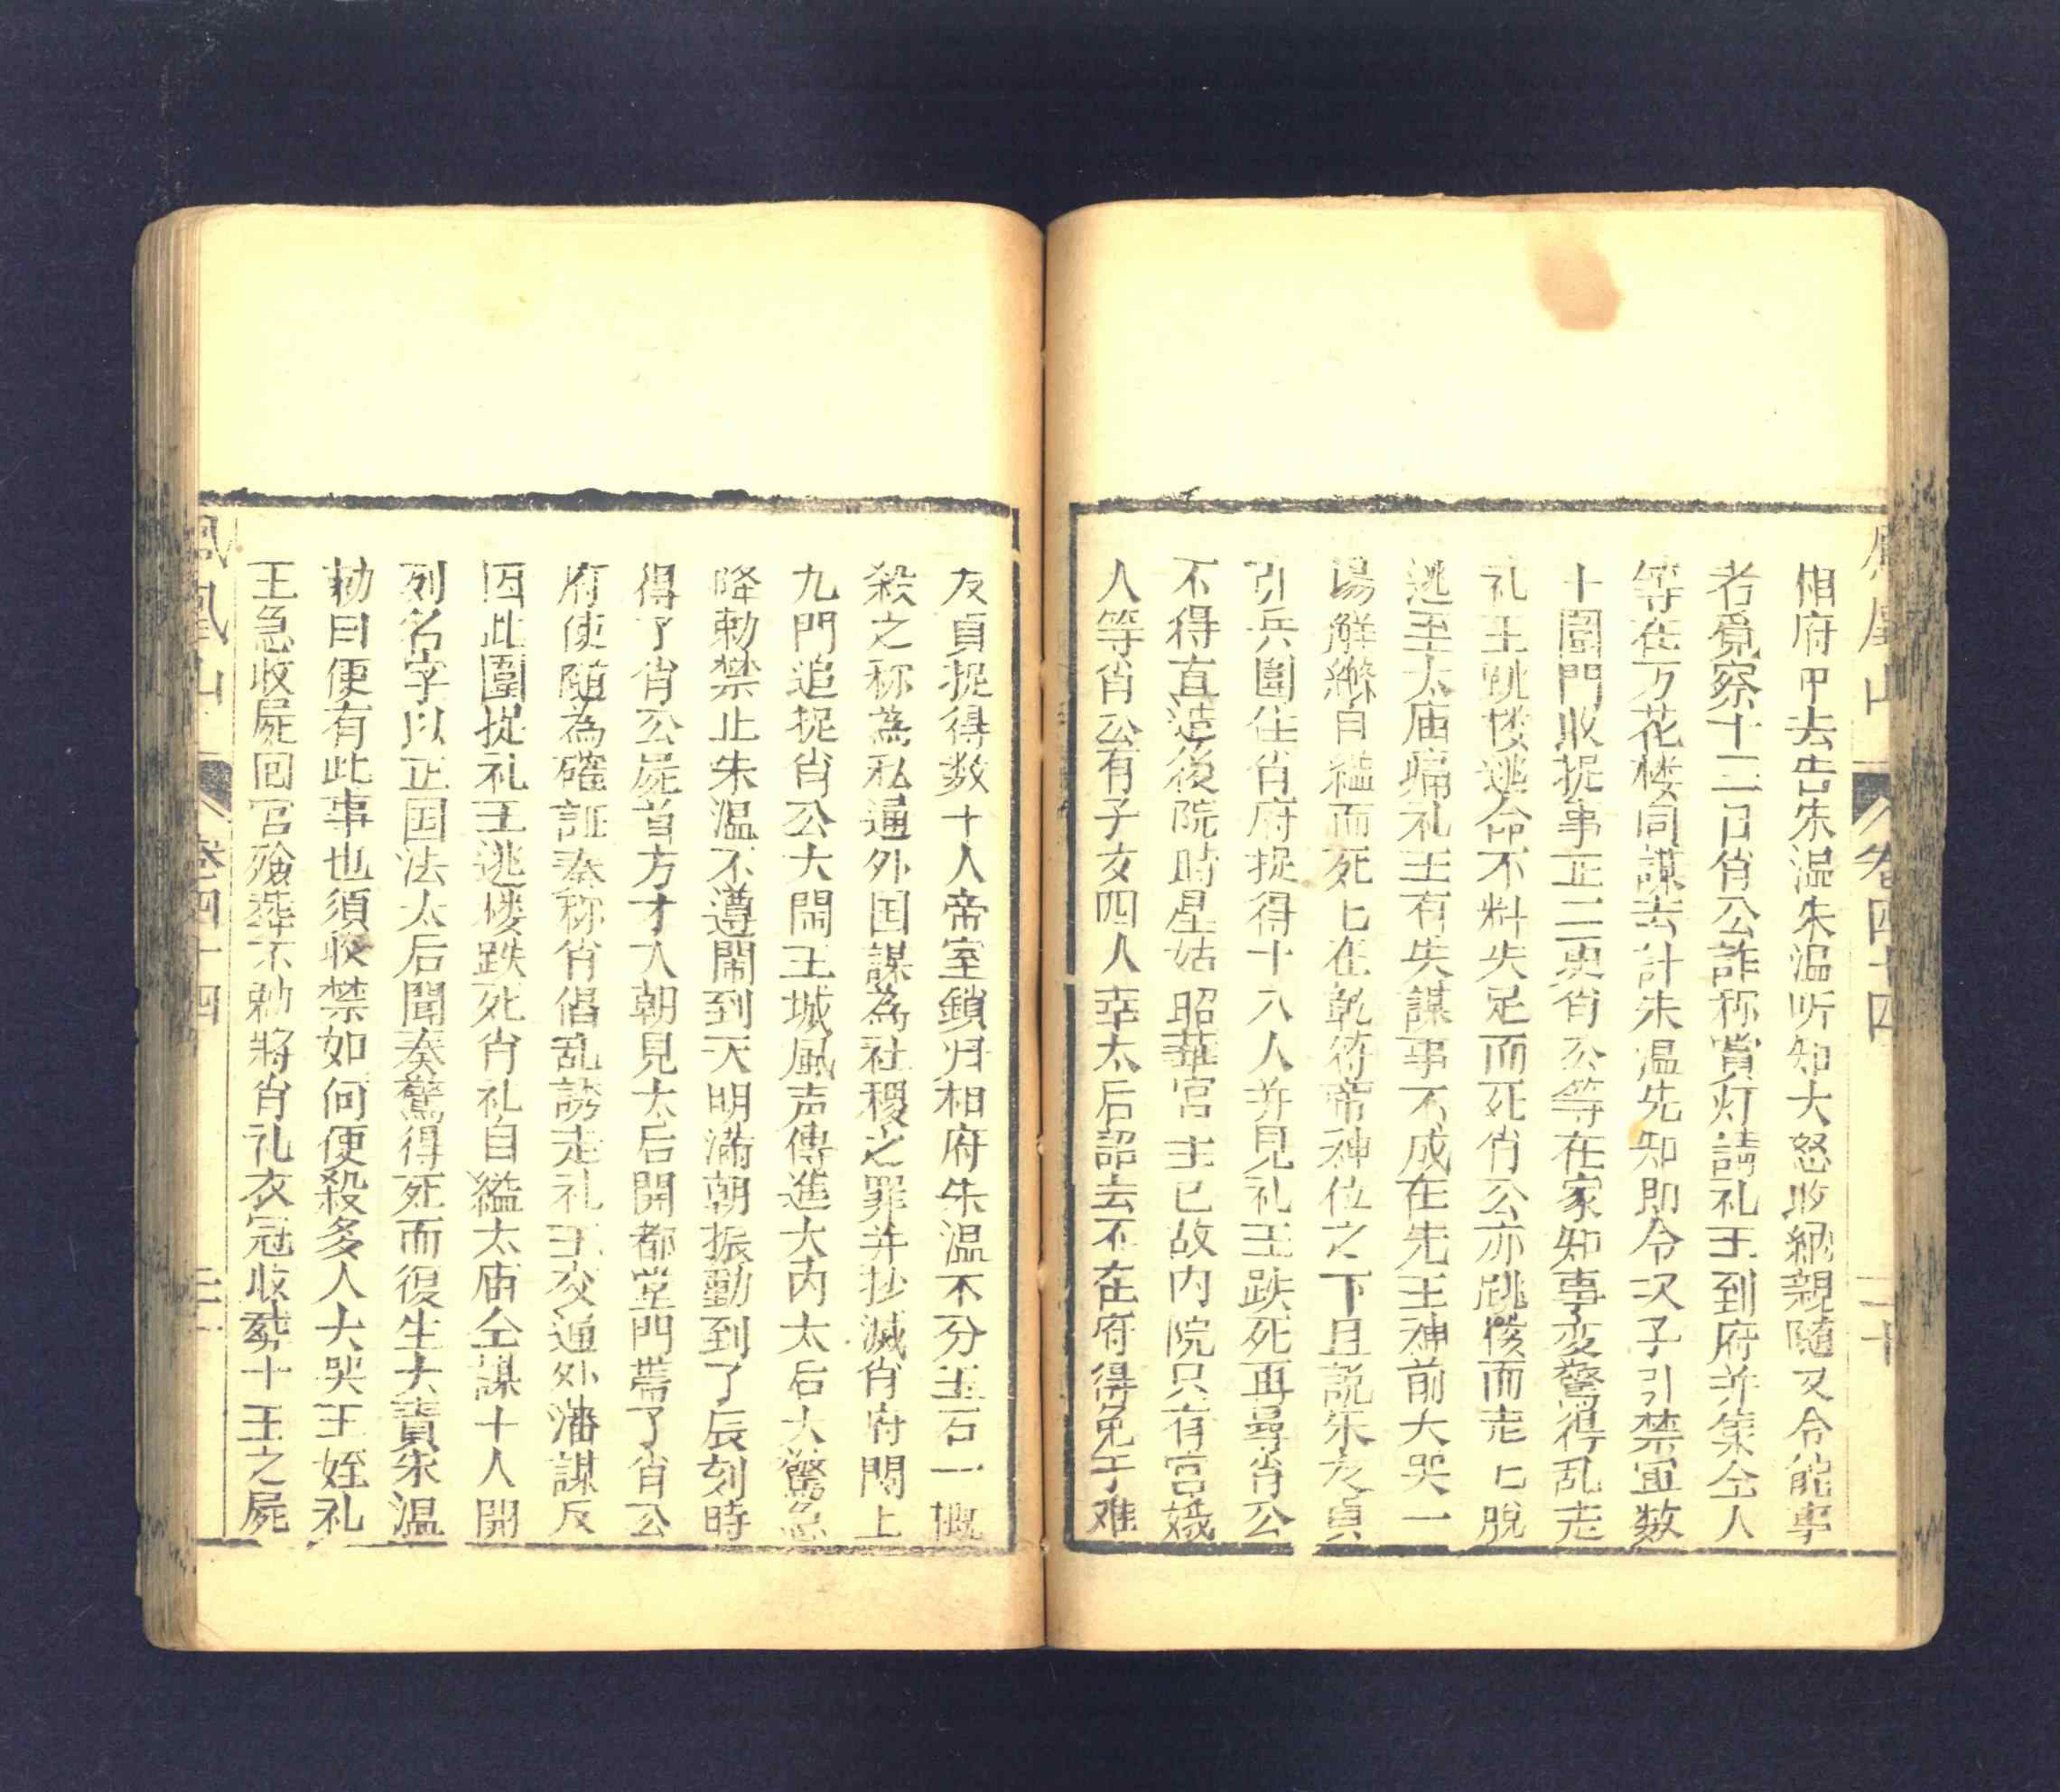 鳳凰山 卷四十四 二十
相府甲去告朱温朱温听知大怒收絕親隨又令能事
者覓察十三日肖公詐称賞灯請礼王到府并集仝人
等在万花楼同謀去計朱温先知即令次子引禁軍数
十圍門收捉事正二更肖公等在家知事变驚得乱走
礼王跳楼逃命不料失足而死肖公亦跳楼而走匕脫
逃至太庙痛礼王有失謀事不成在先王神前大哭一
場解縧自縊而死匕在乾符帝神位之下且説朱友貞
引兵圍住肖府捉得十八人并見礼王跌死再尋肖公
不得直造後院時星姑昭華宮主已故内院只有宫娥
人等肖公有子女四人幸太后詔去不在府得免于难
友貞捉得数十人帝室鎖归相府朱温不分玉石一概
殺之称為私通外国謀為社稷之罪并抄滅肖府閉上
九門追捉肖公大閙王城風声傳進大内太后大驚急
降勅禁止朱温不遵閙到天明满朝振動到了辰刻時
得了肖公屍首方才入朝見太后開都堂門帶了肖公
府使随為確証奏称肖倡乱誘走礼王交通外潘謀反
因此圍捉礼王逃楼跌死肖礼自縊太庙仝謀十人開
列名字以正国法太后聞奏驚得死而復生大責朱温
勅曰便有此事也須收禁如何便殺多人大哭王姪礼
王急收屍回官殮葬不勅將肖礼衣冠收葬十王之屍
鳳凰山 卷四十四 二十一